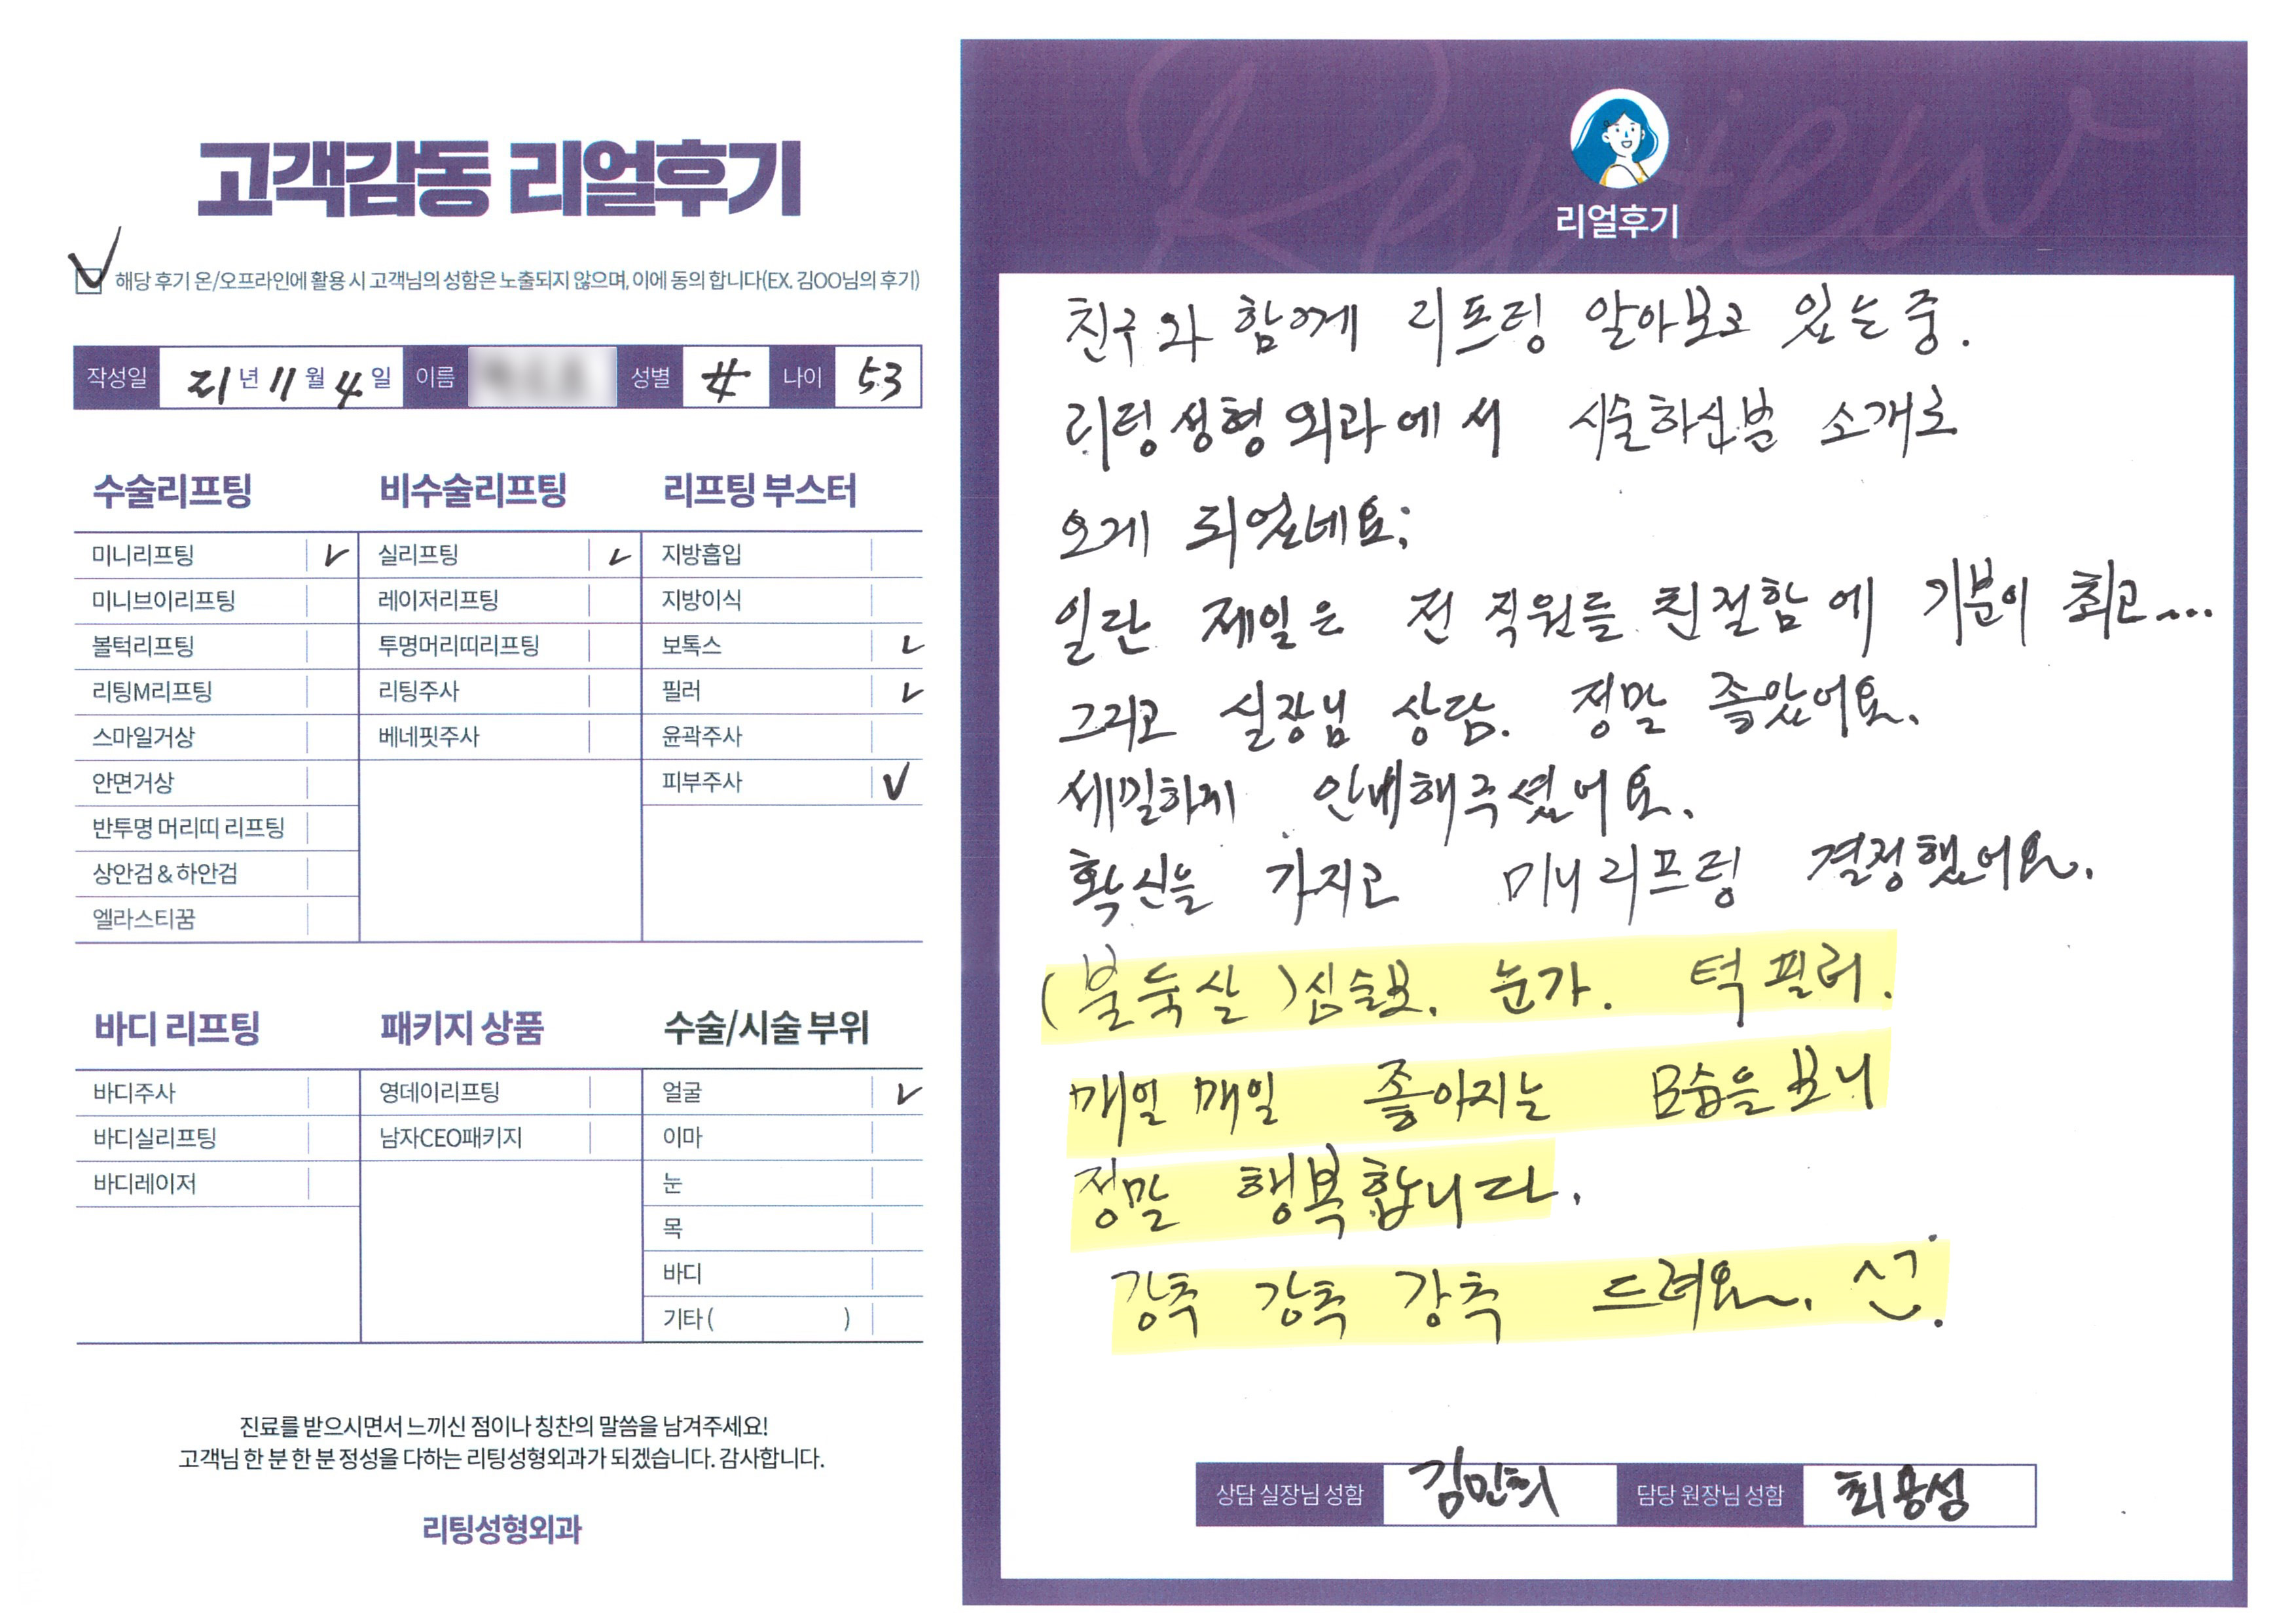 고객감동 리얼후기
해당 후기 온/오프라인에 활용 시 고객님의 성함은 노출되지 않으며, 이에 동의 합니다(EX. 김OO님의 후기)
작성일 21년 11월 4일 이름 성별 女 나이 53
수술리프팅
미니리프팅
미니브이리프팅
볼턱리프팅
리팅M리프팅
스마일거상
안면거상
반투명 머리띠 리프팅
상안검 & 하안검
엘라스티꿈
비수술리프팅
실리프팅
레이저리프팅
투명머리띠리프팅
리팅주사
베네핏주사
리프팅 부스터
지방흡입
지방이식
보톡스
필러
윤곽주사
피부주사
바디 리프팅
바디주사
바디실리프팅
바디레이저
패키지 상품
영데이리프팅
남자CEO패키지
수술/시술 부위
얼굴
이마
눈
목
바디
기타 ( )
진료를 받으시면서 느끼신 점이나 칭찬의 말씀을 남겨주세요!
고객님 한 분 한 분 정성을 다하는 리팅성형외과가 되겠습니다. 감사합니다.
리팅성형외과
Review
리얼후기
친구와 함께 리프팅 알아보고 있는 중.
리팅성형외과에서 시술하신분 소개로
오게 되었네요;
일단 제일은 전 직원들 친절함에 기분이 최고...
그리고 실장님 상담. 정말 좋았어요.
세밀하게 안내해주셨어요.
확신을 가지고 미니리프팅 결정했어요.
(불둑살)심술보. 눈가. 턱필러.
매일매일 좋아지는 모습을 보니
정말 행복합니다.
강추 강추 강추 드려요~.
상담 실장님 성함 김민희 담당 원장님 성함 최용성